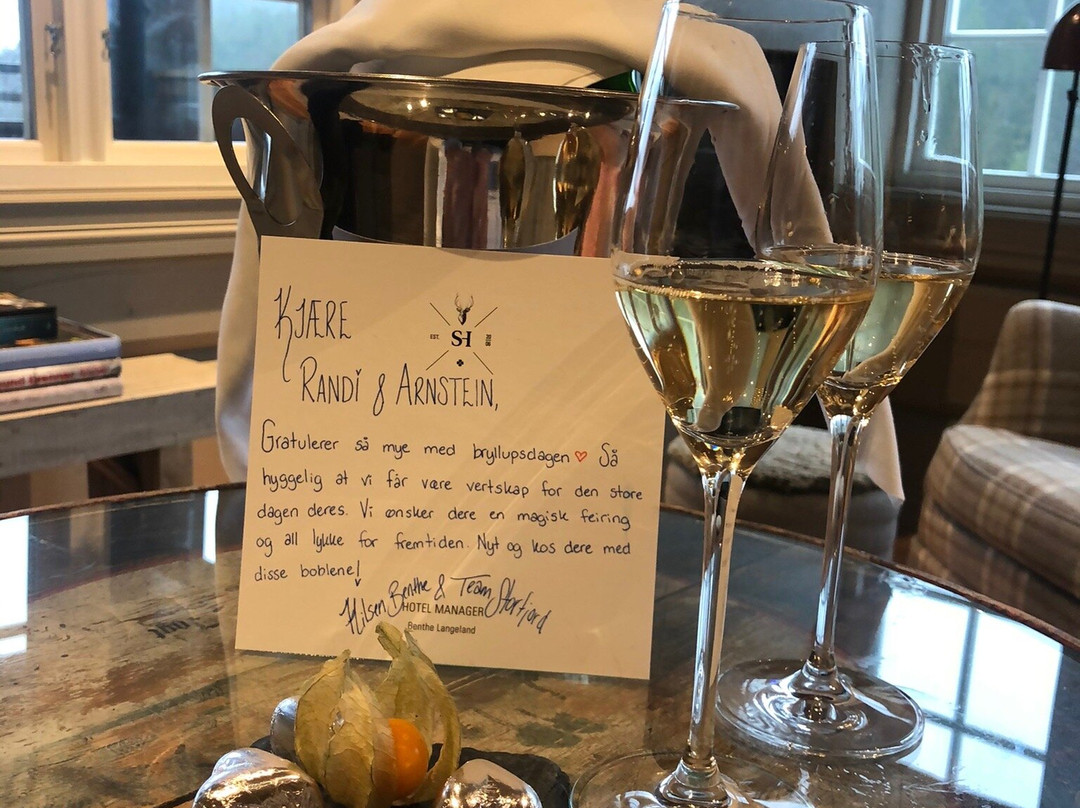 KJÆRE
EST. SH
RANDI & ARNSTEIN,
Gratulerer så mye med bryllupsdagen ♡ Så
hyggelig at vi får være vertskap for den store
dagen deres. Vi ønsker dere en magisk feiring
og all lykke for fremtiden. Nyt og kos dere med
disse boblene!
Hilsen Benthe & Team Storfjord
HOTEL MANAGER
Benthe Langeland